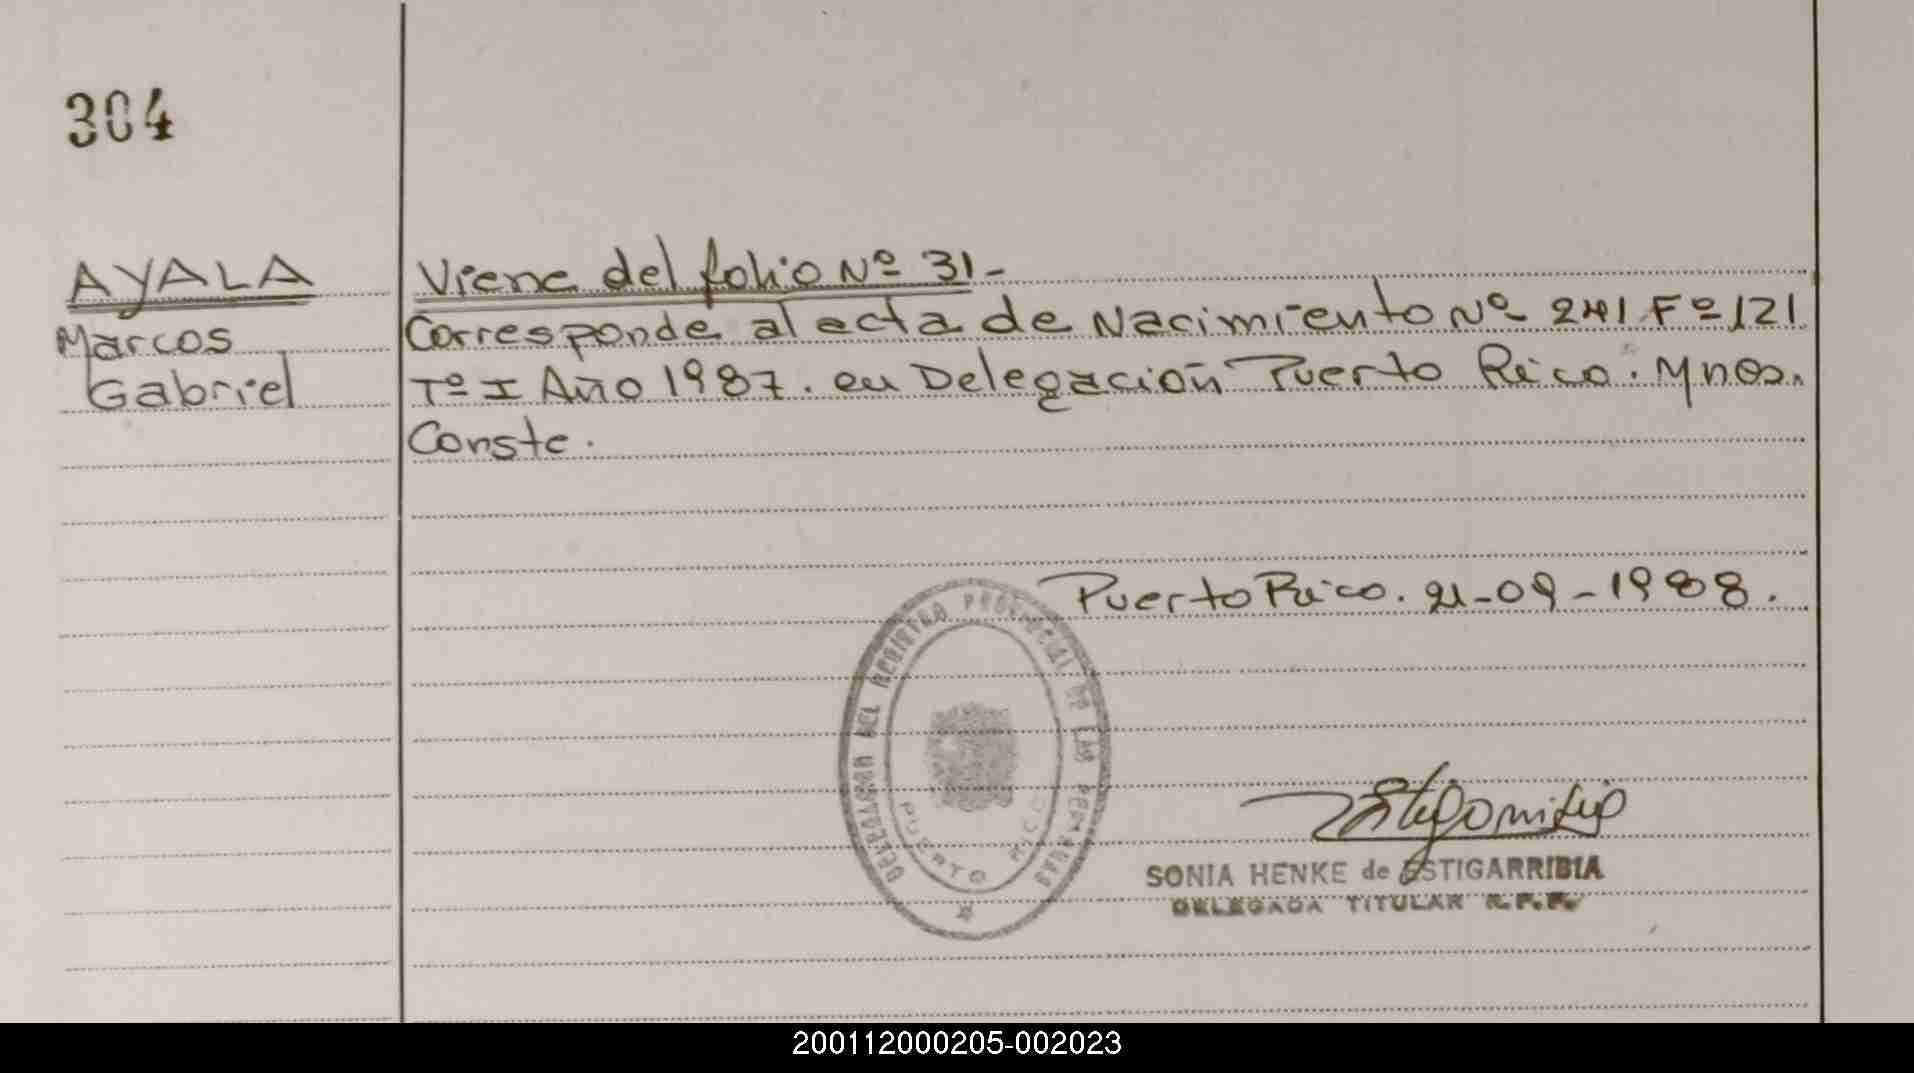 304
AYALA
Marcos
Gabriel
Viene del folio Nº 31-
Corresponde al acta de Nacimiento Nº 241 Fº 121
Tº I Año 1987. en Delegación Puerto Rico. Mnes.
Conste.
Puerto Rico. 21-09-1988.
DELEGACION DEL REGISTRO PROVINCIAL DE LAS PERSONAS
PUERTO RICO
SONIA HENKE de ESTIGARRIBIA
DELEGADA TITULAR R.P.P.
200112000205-002023